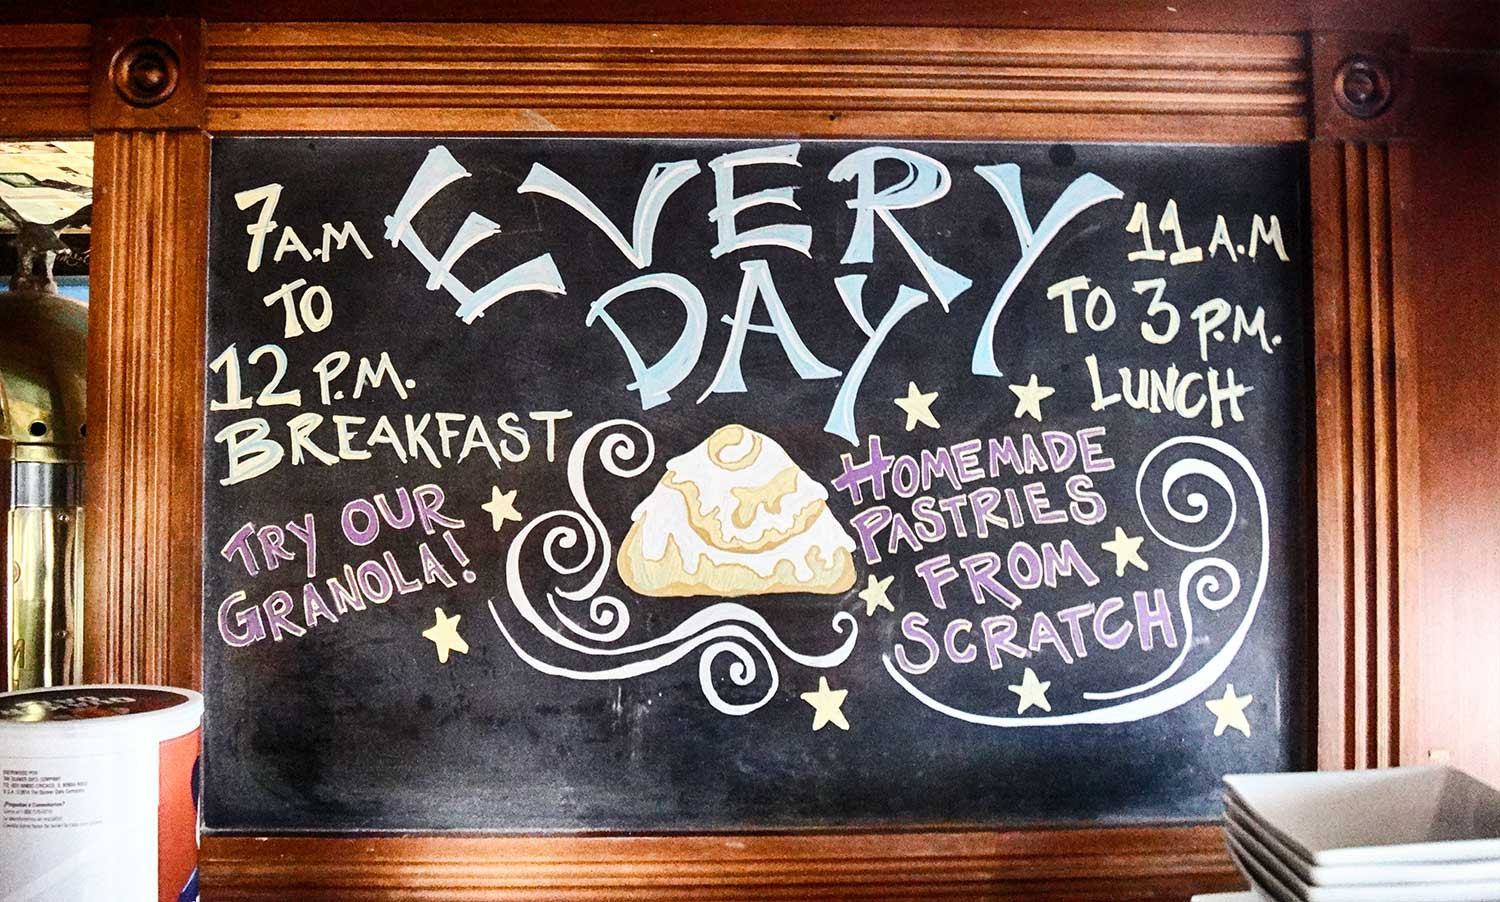 EVERY
DAY
7 A.M
TO
12 P.M.
BREAKFAST
TRY OUR
GRANOLA!
11 A.M
TO 3 P.M.
LUNCH
HOMEMADE
PASTRIES
FROM
SCRATCH